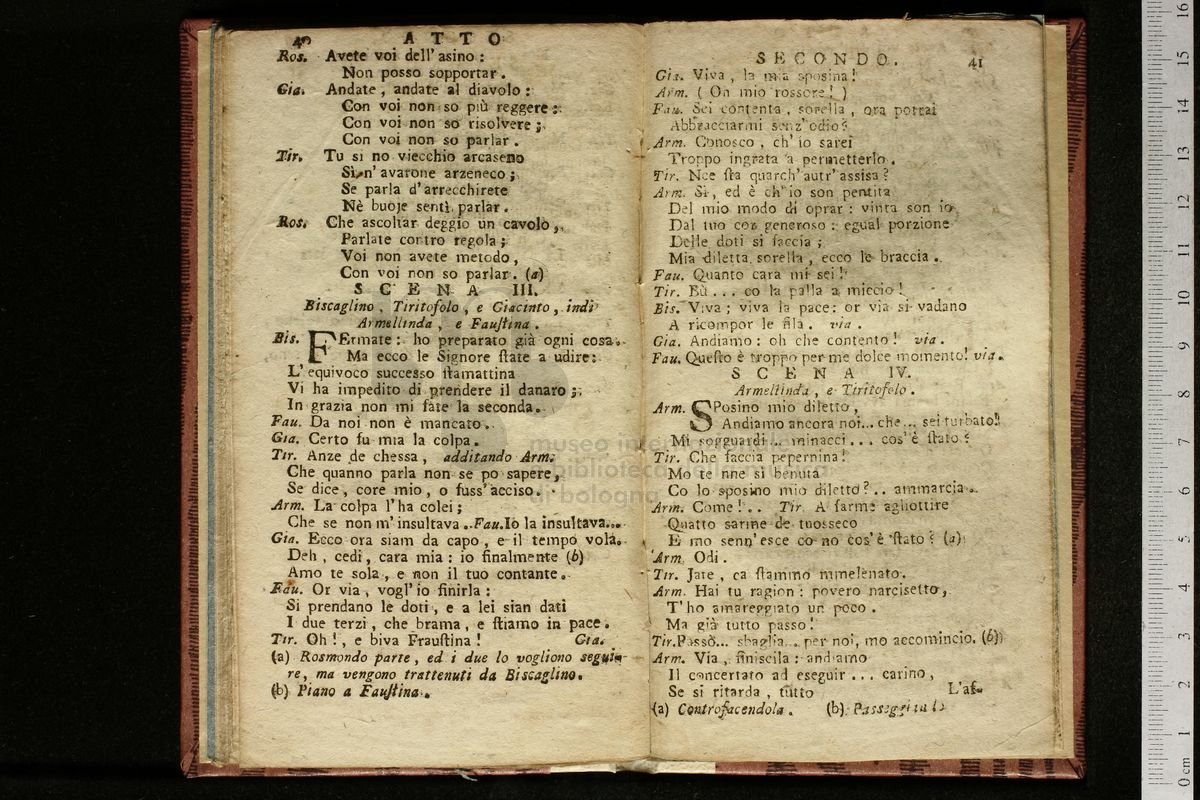 40 ATTO
Ros. Avete voi dell' asino :
Non posso sopportar .
Gia. Andate , andate al diavolo :
Con voi non so più reggere :
Con voi non so risolvere ;
Con voi non so parlar .
Tir. Tu si no viecchio arcaseno
Sì, n' avarone arzeneco ;
Se parla d' arrecchirete
Nè buoje sentì parlar .
Ros. Che ascoltar deggio un cavolo ,
Parlate contro regola ;
Voi non avete metodo ,
Con voi non so parlar . (a)
SCENA III.
Biscaglino , Tiritofolo , e Giacinto , indi
Armellinda , e Faustina .
Bis. FErmate : ho preparato già ogni cosa .
Ma ecco le Signore state a udire :
L' equivoco successo stamattina
Vi ha impedito di prendere il danaro ;
In grazia non mi fate la seconda .
Fau. Da noi non è mancato .
Gia. Certo fu mia la colpa .
Tir. Anze de chessa , additando Arm.
Che quanno parla non se po sapere ,
Se dice , core mio , o fuss' acciso .
Arm. La colpa l' ha colei ;
Che se non m' insultava .. Fau. Io la insultava ...
Gia. Ecco ora siam da capo , e il tempo vola .
Deh , cedi , cara mia : io finalmente (b)
Amo te sola , e non il tuo contante .
Fau. Or via , vogl' io finirla :
Si prendano le doti , e a lei sian dati
I due terzi , che brama , e stiamo in pace .
Tir. Oh ! , e biva Fraustina ! Gia.
(a) Rosmondo parte , ed i due lo vogliono segui-
re , ma vengono trattenuti da Biscaglino .
(b) Piano a Faustina .
SECONDO. 41
Gia. Viva , la mia sposina !
Arm. ( Oh mio rossore ! )
Fau. Sei contenta , sorella , ora potrai
Abbracciarmi senz' odio ?
Arm. Conosco , ch' io sarei
Troppo ingrata a permetterlo .
Tir. Nce sta quarch' autr' assisa ?
Arm. Sì , ed è ch' io son pentita
Del mio modo di oprar : vinta son io
Dal tuo cor generoso : egual porzione
Delle doti si faccia ;
Mia diletta sorella , ecco le braccia .
Fau. Quanto cara mi sei !
Tir. Bù ... co la palla a miccio !
Bis. Viva ; viva la pace : or via si vadano
A ricompor le fila . via .
Gia. Andiamo : oh che contento ! via .
Fau. Questo è troppo per me dolce momento ! via .
SCENA IV.
Armellinda , e Tiritofolo .
Arm. SPosino mio diletto ,
Andiamo ancora noi ... che ... sei turbato !
Mi sogguardi ... minacci ... cos' è stato ?
Tir. Che faccia pepernina !
Mo te nne si benuta
Co lo sposino mio diletto ? .. ammarcia ..
Arm. Come ! .. Tir. A farme agliottire
Quatto sarme de tuosseco
E mo senn' esce co no cos' è stato ? (a)
Arm. Odi .
Tir. Jate , ca stammo mmelenato .
Arm. Hai tu ragion : povero narcisetto ,
T' ho amareggiato un poco .
Ma già tutto passò !
Tir. Passò ... sbaglia ... per noi , mo accomincio . (b)
Arm. Via , finiscila : andiamo
Il concertato ad eseguir ... carino ,
Se si ritarda , tutto
L'af-
(a) Controfacendola . (b)
museo
biblioteca della musica
di bologna
0 cm 1 2 3 4 5 6 7 8 9 10 11 12 13 14 15 16